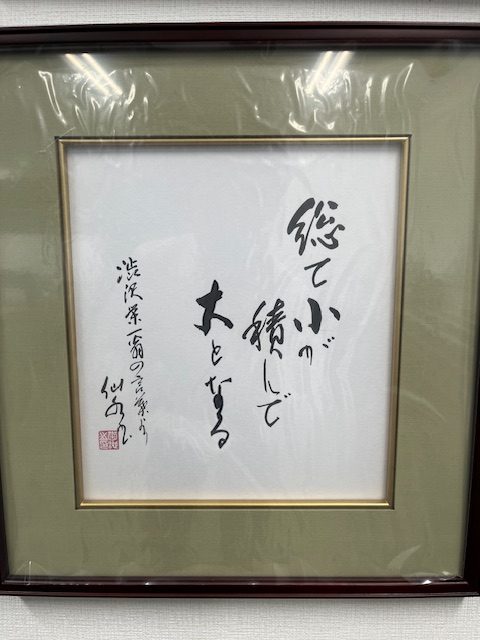 総て小が
積んで
大となる
渋沢栄一翁の言葉より